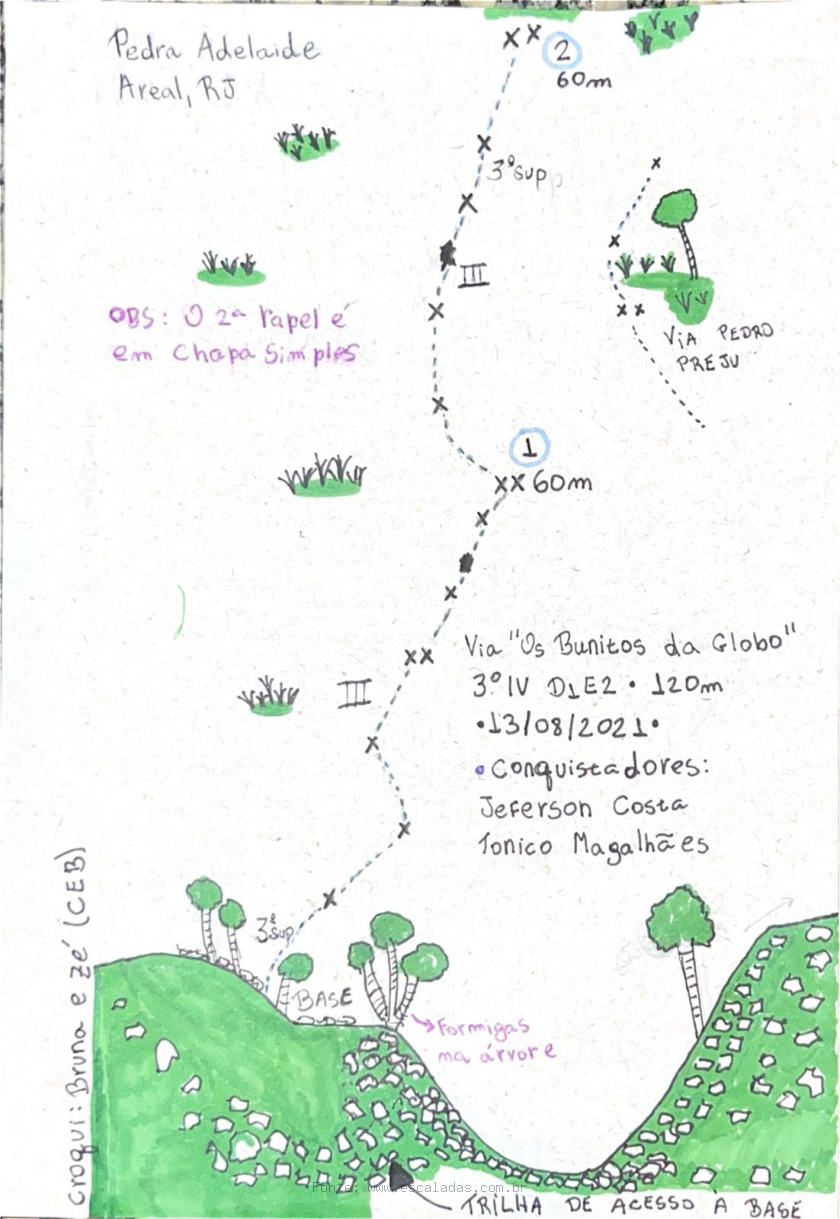 Pedra Adelaide
Areal, RJ
2
60m
3ºsup
III
OBS: O 2ª rapel é
em Chapa Simples
VIA PEDRO
PREJU
1
60m
Via "Os Bunitos da Globo"
3º IV D1E2 • 120m
•13/08/2021•
• Conquistadores:
Jeferson Costa
Tonico Magalhães
III
3ºsup
BASE
Formigas
na árvore
Croqui: Bruna e Zé (CEB)
Fonte: www.escaladas.com.br
TRILHA DE ACESSO À BASE